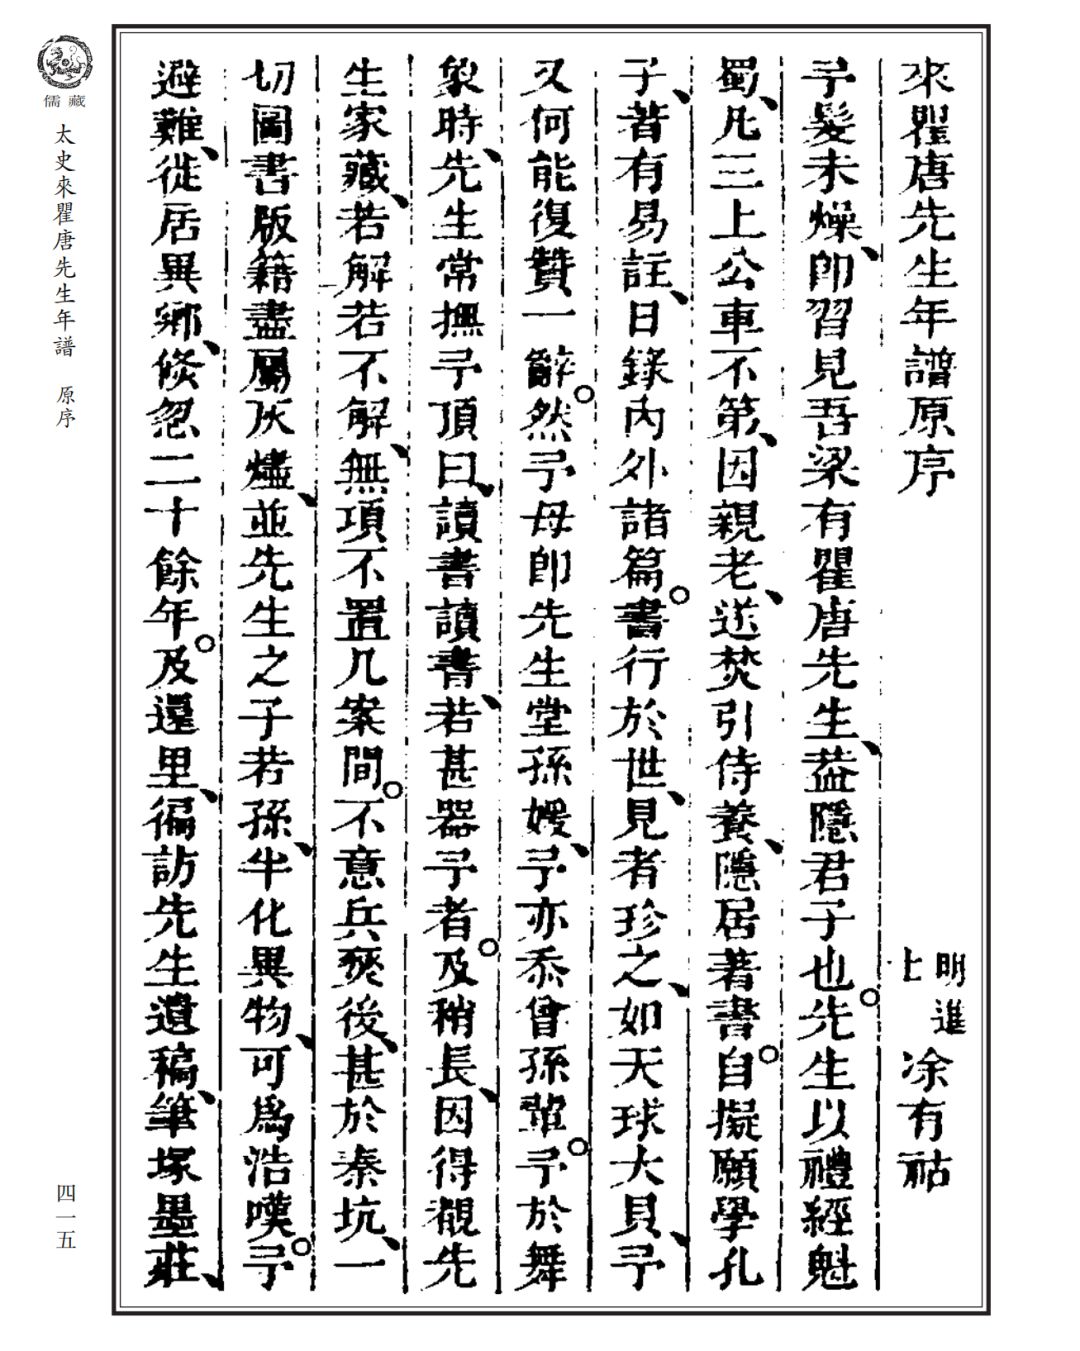 來瞿唐先生年譜原序
明進士 凃有祜
予髮未燥、卽習見吾梁有瞿唐先生、葢隱君子也。先生以禮經魁
蜀、凡三上公車不第、因親老、送焚引侍養、隱居著書。自擬願學孔
子、著有易註、日錄內外諸篇。書行於世、見者珍之、如天球大貝、予
又何能復贊一辭。然予母卽先生堂孫媛、予亦忝曾孫輩。予於舞
象時、先生常撫予頂曰、讀書讀書、若甚器予者。及稍長、因得覩先
生家藏、若解若不解、無項不置几案間。不意兵燹後、甚於秦坑、一
切圖書版籍盡屬灰燼、並先生之子若孫、半化異物、可爲浩嘆。予
避難、徙居異鄉、倏忽二十餘年。及還里、徧訪先生遺稿、筆塚墨莊、
儒藏
太史來瞿唐先生年譜 原序
四一五